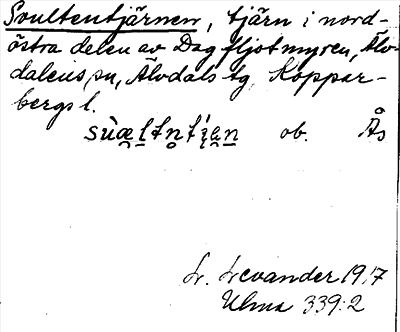 Svultentjärnen, tjärn i nord-
östra delen av Dagfljotmyren, Älv-
dalens sn, Älvdals tg, Koppar-
bergs l.
ob. Ås
L. Levander 1917
Ulma 339:2